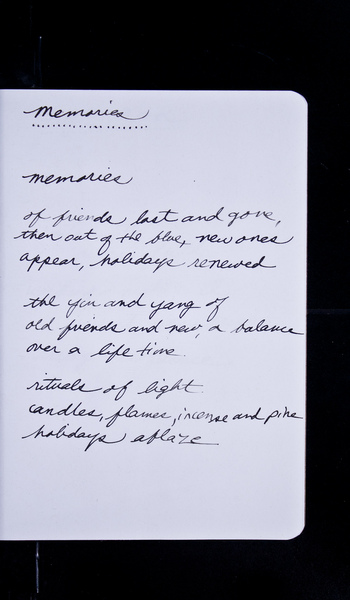 memories
memories
of friends lost and gone,
then out of the blue, new ones
appear, holidays renewed
the yin and yang of
old friends and new, a balance
over a life time.
rituals of light
candles, flames, incense and pine
holidays ablaze